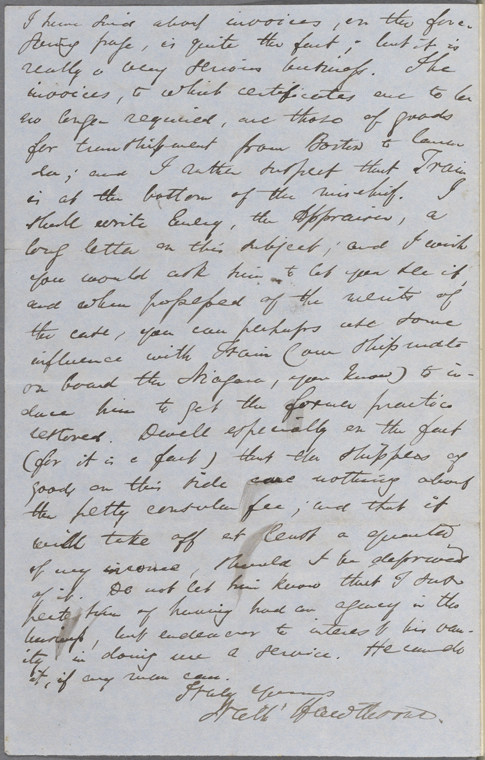 I have said about invoices, on the fore-
going page, is quite the fact; but it is
really a very serious business. The
invoices, to which certificates are to be
no longer required, are those of goods
for transshipment from Boston to Cana-
da; and I rather suspect that Train
is at the bottom of the mischief. I
shall write Emery, the Appraiser, a
long letter on this subject; and I wish
you would ask him to let you see it,
and when possessed of the merits of
the case, you can perhaps use some
influence with Train (our shipmate
on board the Niagara, you know) to in-
duce him to get the former practice
restored. Dwell especially on the fact
(for it is a fact) that the shippers of
goods on this side care nothing about
the petty consular fee; and that it
will take off at least a quarter
of my income, should I be deprived
of it. Do not let him know that I sus-
pect him of having had an agency in this
business, but endeavor to interest his van-
ity in doing me a service. He can do
it, if any man can.
Truly Yours
Nath' Hawthorne.